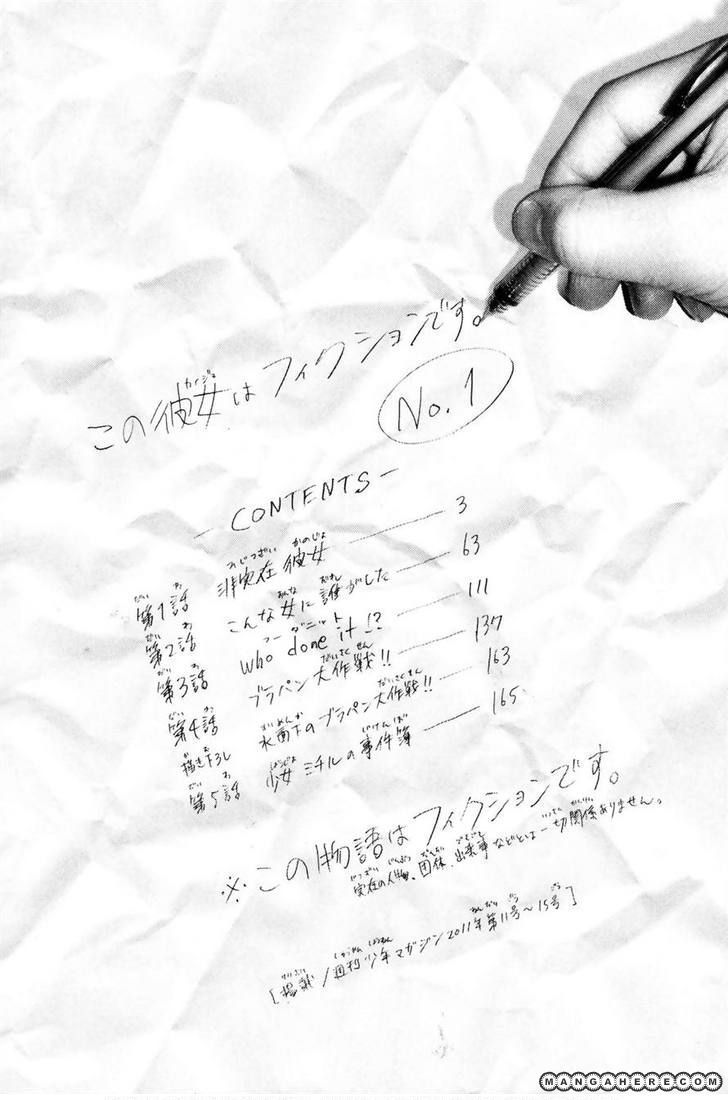 この彼女はフィクションです。
No.1
-CONTENTS-
第1話 非実在彼女 3
第2話 こんな女に誰がした 63
第3話 who done it!? 111
第4話 ブラパン大作戦!! 137
描き下ろし 水面下のブラパン大作戦!! 163
第5話 少女ミチルの事件簿 165
※この物語はフィクションです。
実在の人物、団体、出来事などとは一切関係ありません。
[掲載/週刊少年マガジン2011年第11号~15号]
MANGAHERE.COM